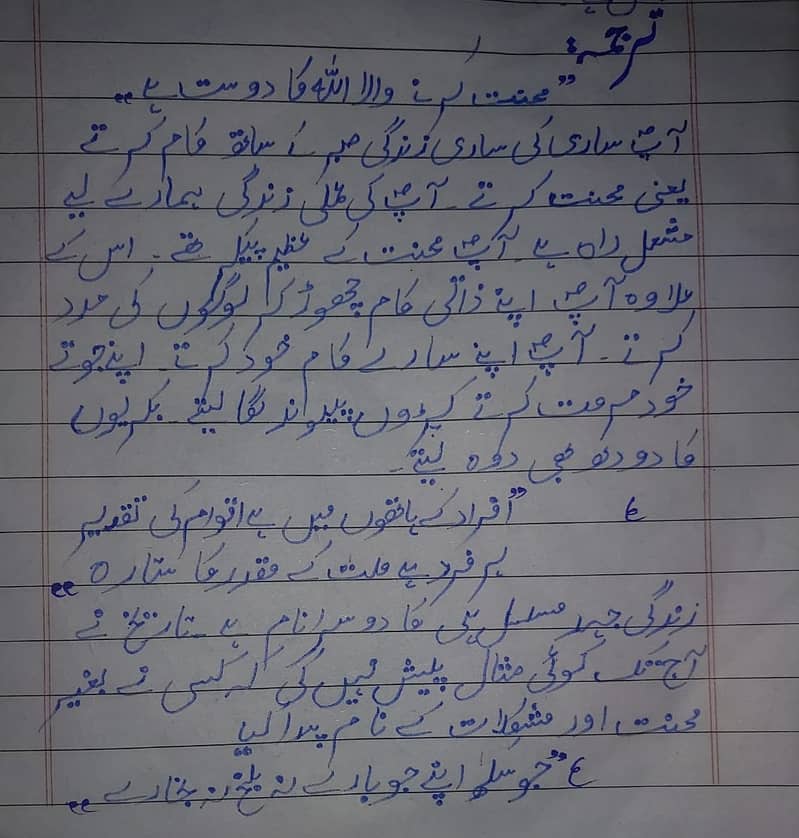 ترجمہ:
"محنت کرنے والا اللہ کا دوست ہے"
آپؐ ساری کی ساری زندگی صبر کے ساتھ کام کرتے
یعنی محنت کرتے۔ آپؐ کی عملی زندگی ہمارے لیے
مشعل راہ ہے۔ آپؐ محنت کے عظیم پیکر تھے۔ اس کے
علاوہ آپؐ اپنے ذاتی کام چھوڑ کر لوگوں کی مدد
کرتے۔ آپؐ اپنے سارے کام خود کرتے۔ اپنے جوتے
خود مرمت کرتے کپڑوں پیوند لگا لیتے۔ بکریوں
کا دودھ بھی دوہ لیتے۔
؏ "افراد کے ہاتھوں میں ہے اقوام کی تقدیر
ہر فرد ہے ملت کے مقدر کا ستارہ"
زندگی جہد مسلسل ہی کا دوسرا نام ہے۔ تاریخ نے
آج تک کوئی مثال پیش نہیں کی کہ کسی نے بغیر
محنت اور مشکلات کے نام پیدا کیا
؏ "جو سکھ اپنے چوبارے نہ بلخ نہ بخارے"